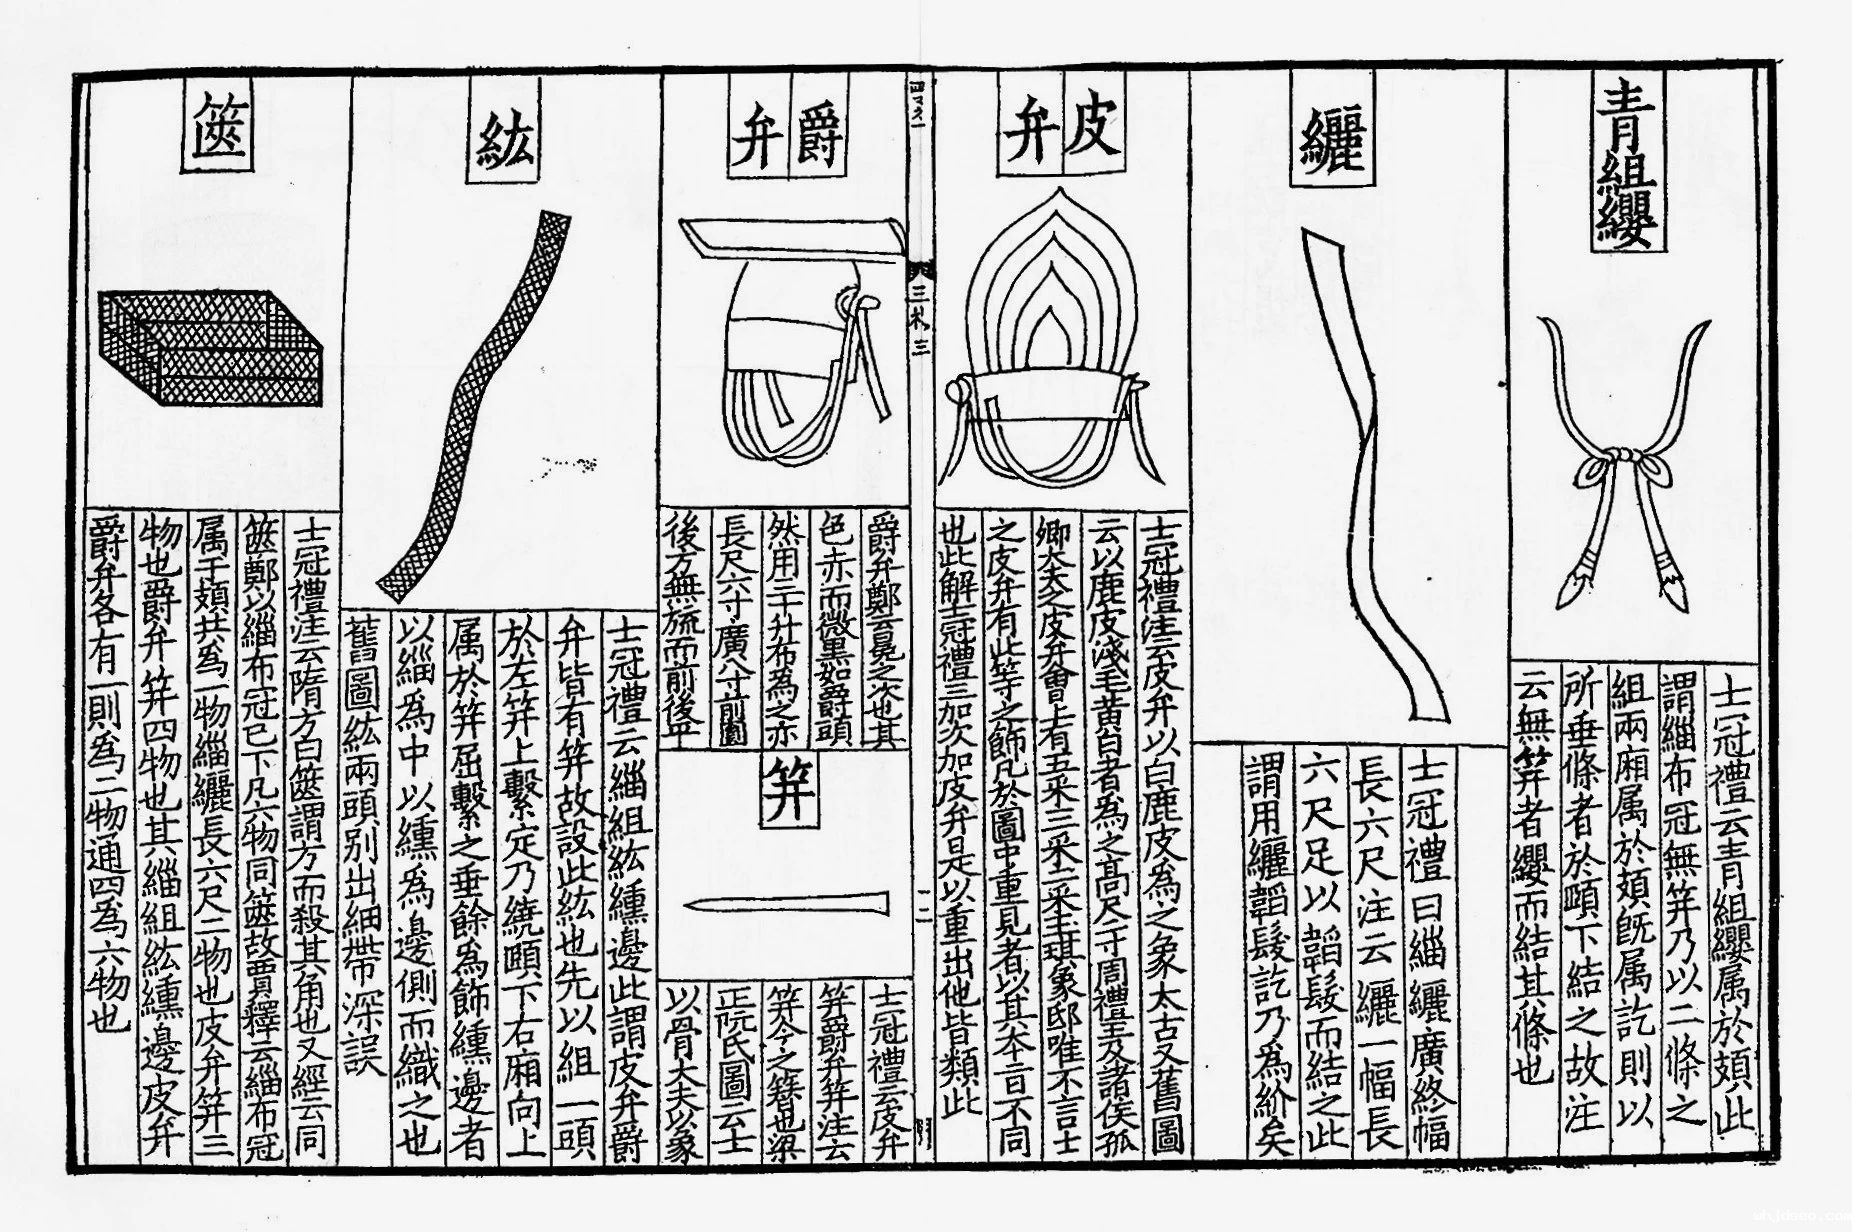 青組纓
士冠禮云青組纓属於頍此
謂緇布冠無筓乃以二條之
組兩廂属於頍既属訖則以
所垂條者於頤下結之故注
云無筓者纓而結其條也
纚
士冠禮曰緇纚廣終幅
長六尺注云纚一幅長
六尺足以韜髮而結之此
謂用纚韜髮訖乃為紒矣
皮弁
士冠禮注云皮弁以白鹿皮為之象太古又舊圖
云以鹿皮淺毛黄白者為之高尺二寸周禮王及諸侯孤
卿大夫之皮弁會上有五采三采二采玉琪象邸唯不言士
之皮弁有此等之飾凡於圖中重見者以其本音不同
也此解士冠禮三加次加皮弁是以重出他皆類此
三礼三
二
爵弁
爵弁鄭云冕之次也其
色赤而微黒如爵頭
然用三十升布為之亦
長尺六寸廣八寸前圓
後方無旒而前後平
筓
士冠禮云皮弁
筓爵弁筓注云
筓今之簪也梁
正阮氏圖云士
以骨大夫以象
紘
士冠禮云緇組紘纁邊此謂皮弁爵
弁皆有筓故設此紘也先以組一頭
於左筓上繫定乃繞頤下右廂向上
属於筓屈繫之垂餘為飾纁邊者
以緇為中以纁為邊側而織之也
舊圖紘兩頭别出細帶深誤
篋
士冠禮注云隋方曰篋謂方而殺其角也又經云同
篋鄭以緇布冠已下凡六物同篋故賈釋云緇布冠
属于頍共為一物緇纚長六尺二物也皮弁筓三
物也爵弁筓四物也其緇組紘纁邊皮弁
爵弁各有一則為二物通四為六物也